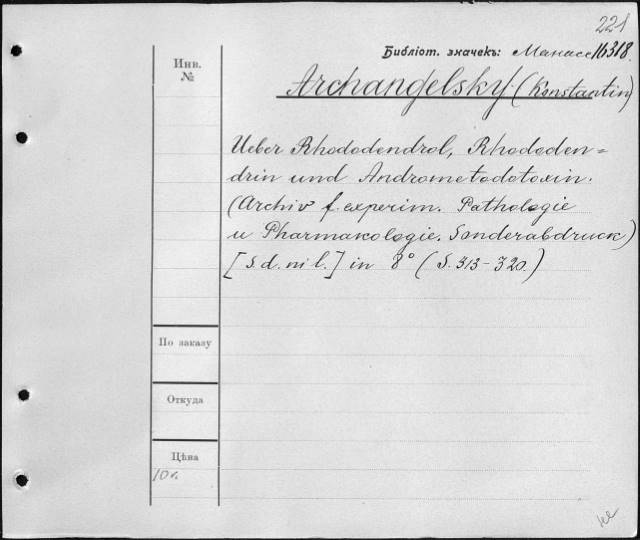 221
Библіот. значекъ: Манасс 16318.
Инв.
№
Archangelsky (Konstantin)
Ueber Rhododendrol, Rhododen=
drin und Andrometodotoxin.
(Archiv f. experim. Pathologie
u Pharmakologie. Sonderabdruck)
[S. d. ni l.] in 8° (S. 313-320.)
По заказу
Откуда
Цѣна
10 к.